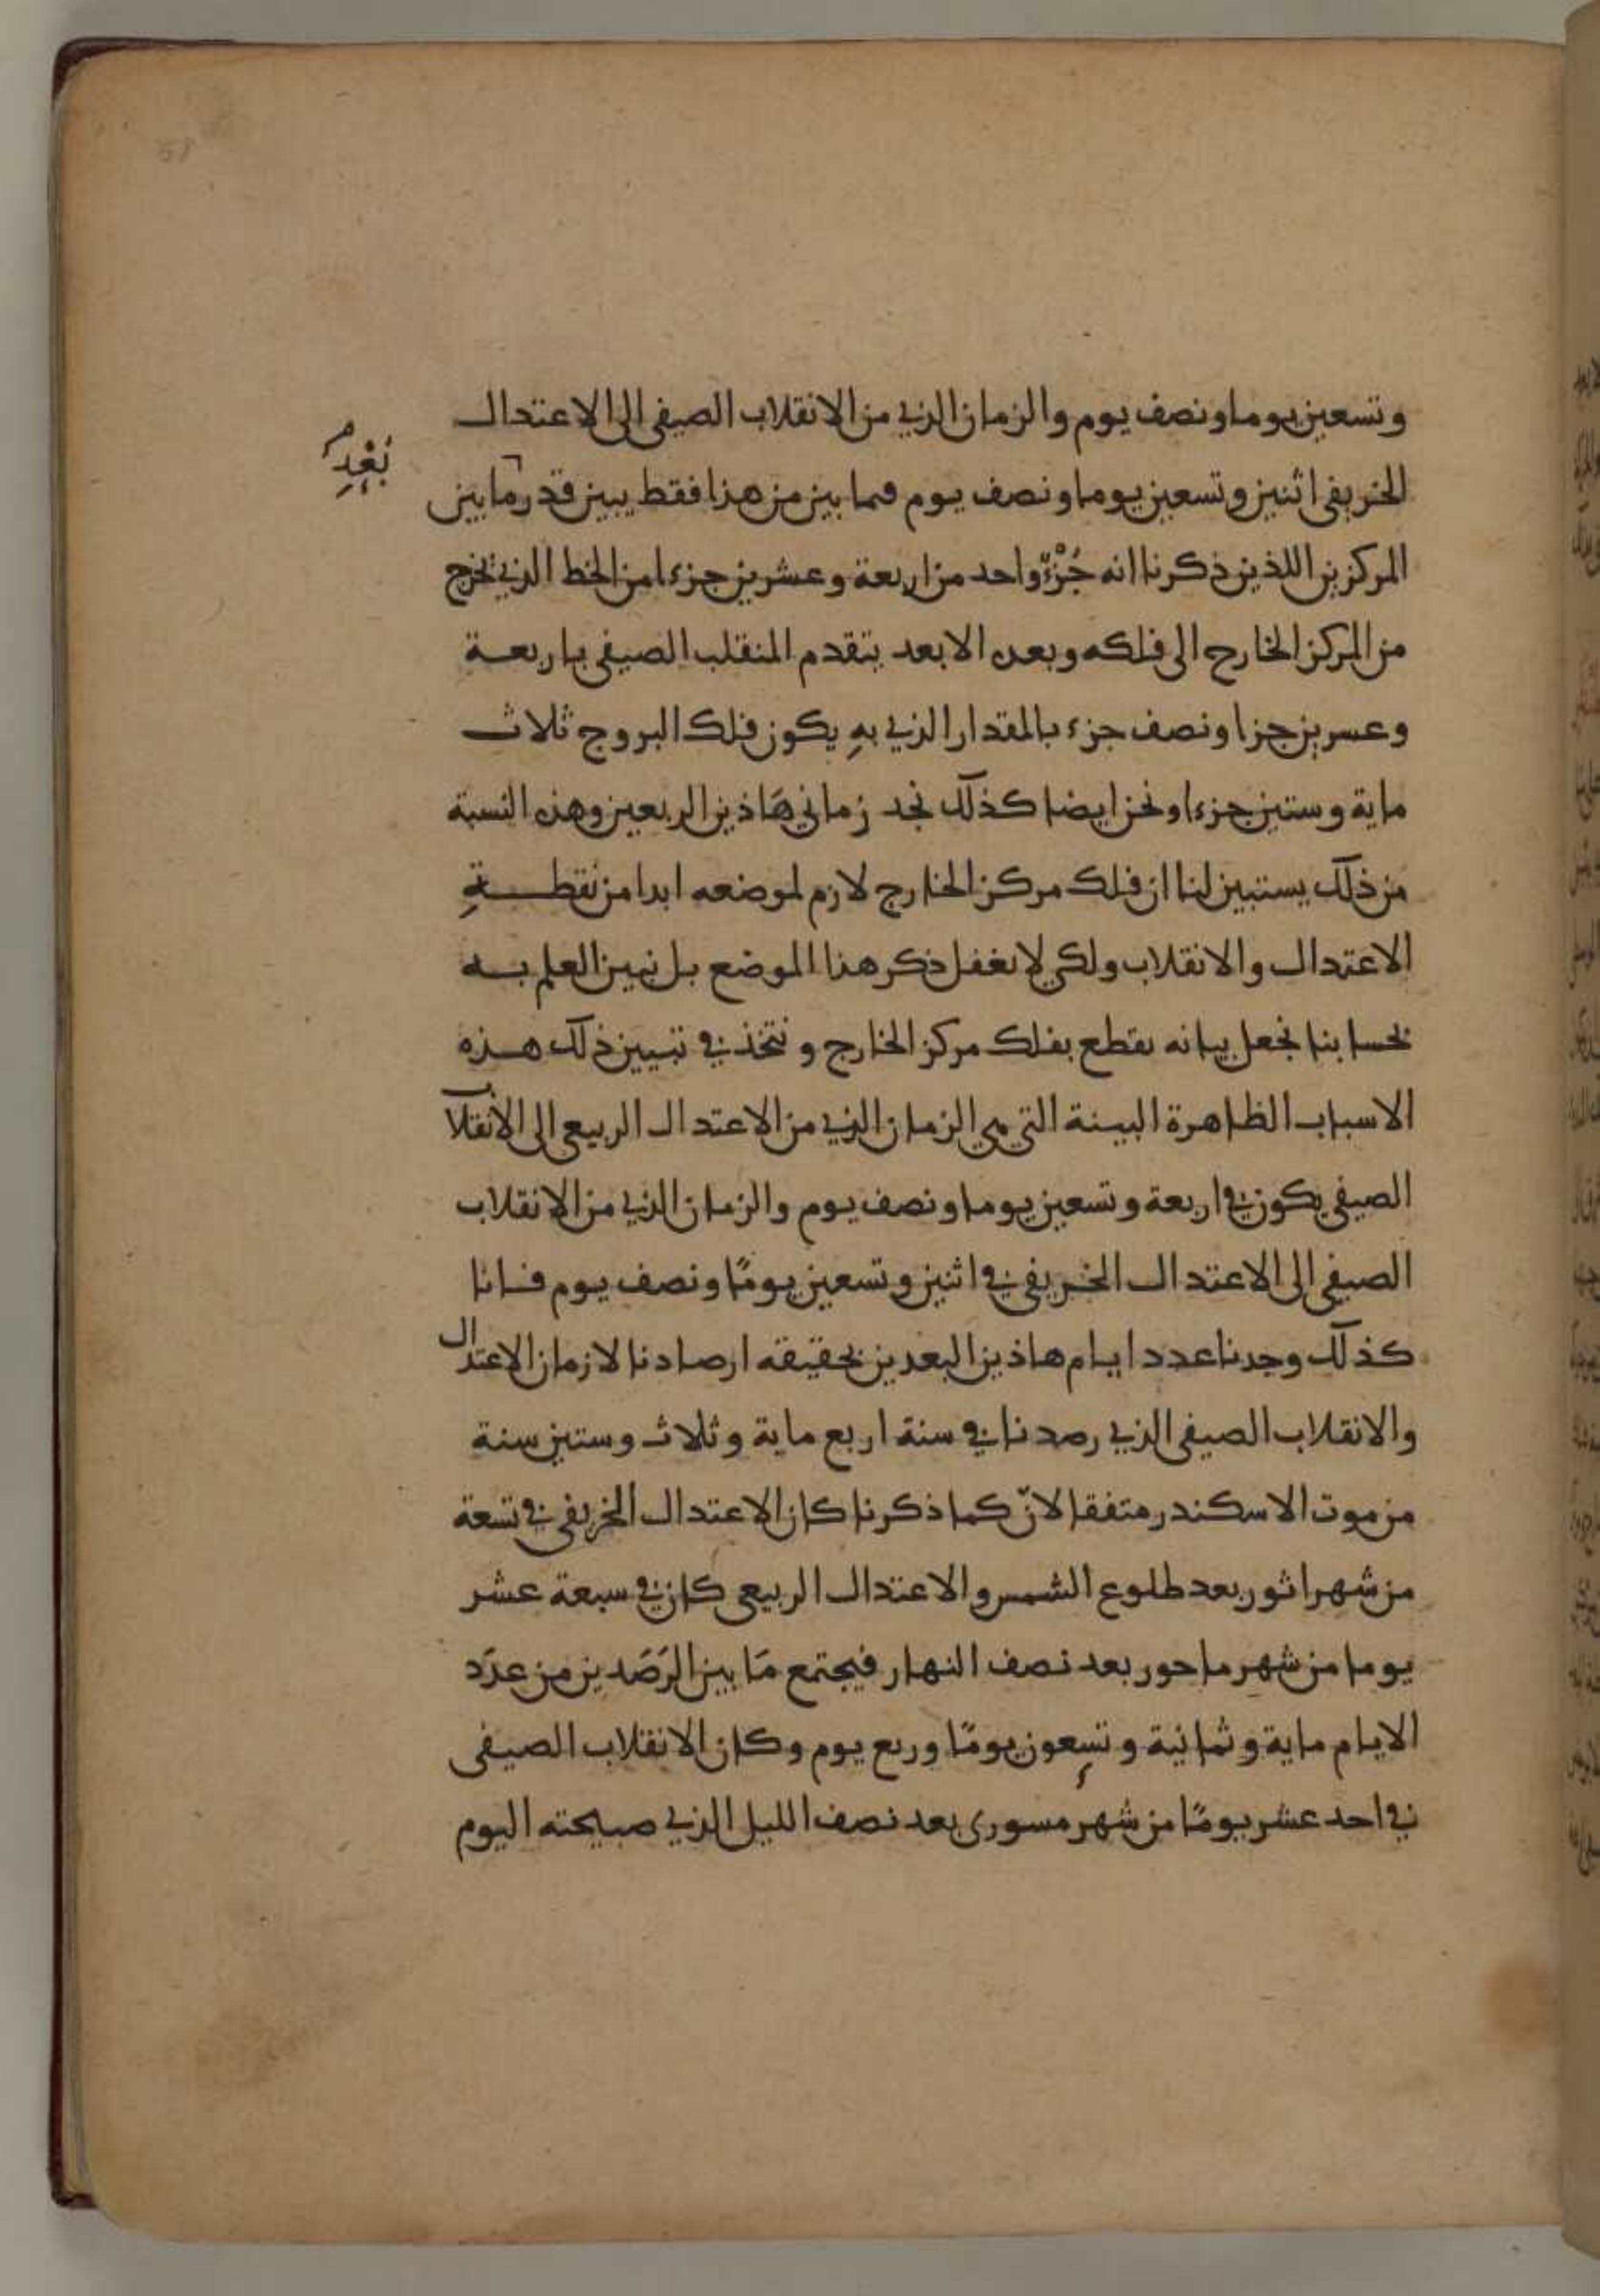 وتسعين يوما ونصف يوم والزمان الذي من الانقلاب الصيفي الى الاعتدال
الخريفي اثنين وتسعين يوما ونصف يوم فما بين من هذا فقط يبين قدر ما بين
بُعْدِ
المركزين اللذين ذكرنا انه جُزْءٌ واحد من اربعة وعشرين جزءا من الخط الذي يخرج
من المركز الخارج الى فلكه وبعده الابعد يتقدم المنقلب الصيفي باربعة
وعسرين جزا ونصف جزء بالمقدار الذي بهِ يكون فلك البروج ثلاث
ماية وستين جزءا ونحن ايضا كذلك نجد زماني هَاذين الربعين وهذه النسبة
من ذلك يستبين لنا ان فلك مركز الخارج لازم لموضعه ابدا من نقطةِ
الاعتدال والانقلاب ولكي لا نغفل ذكر هذا الموضع بل نبين العلم به
بحسابنا نجعل بيانه بقطع بفلك مركز الخارج ونتخذ في تبيين ذلك هذه
الاسباب الظاهرة البينة التي هي الزمان الذي من الاعتدال الربيعي الى الانقلاب
الصيفي يكون في اربعة وتسعين يوما ونصف يوم والزمان الذي من الانقلاب
الصيفي الى الاعتدال الخريفي في اثنين وتسعين يومًا ونصف يوم فانا
كذلك وجدنا عدد ايام هاذين البعدين بحقيقه ارصادنا لازمان الاعتدال
والانقلاب الصيفي الذي رصدنا في سنة اربع ماية وثلاث وستين سنة
من موت الاسكندر متفقا لانّ كما ذكرنا كان الاعتدال الخريفي في تسعة
من شهر اثور بعد طلوع الشمس والاعتدال الربيعي كان في سبعة عشر
يوما من شهر ماحور بعد نصف النهار فيجتمع مَا بين الرَصَدين من عدَد
الايام ماية وثمانية وتسعون يومًا وربع يوم وكان الانقلاب الصيفي
في احد عشر يومًا من شهر مسورى بعد نصف الليل الذي صبيحته اليوم